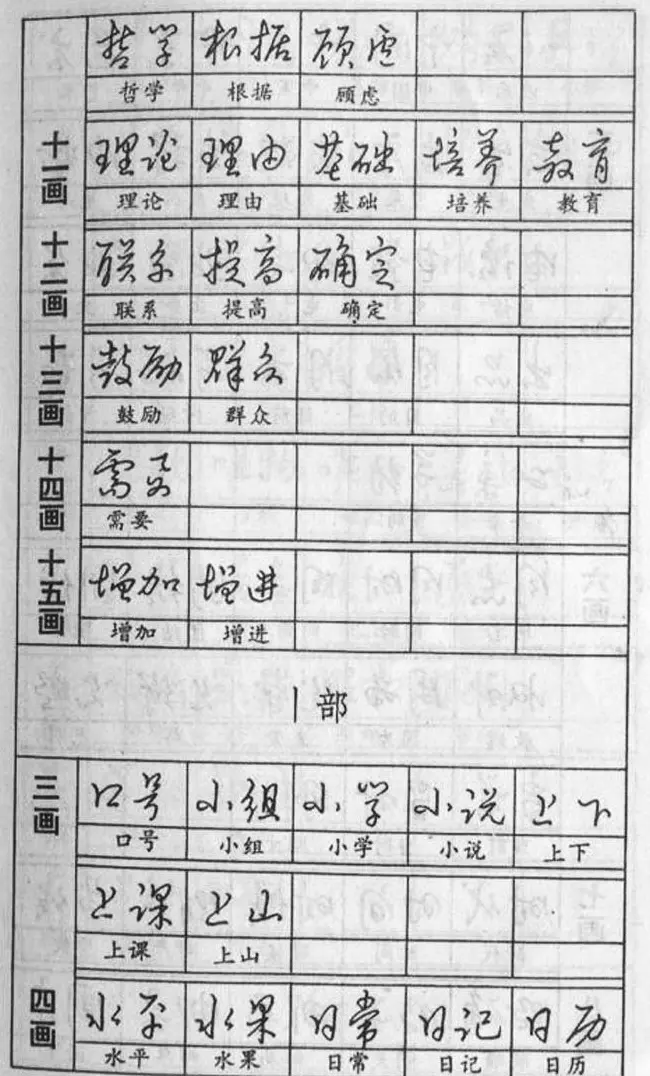 哲学 根据 顾虑
哲学 根据 顾虑
十一画 理论 理由 基础 培养 教育
理论 理由 基础 培养 教育
十二画 联系 提高 确定
联系 提高 确定
十三画 鼓励 群众
鼓励 群众
十四画 需要
需要
十五画 增加 增进
增加 增进
丨部
三画 口号 小组 小学 小说 上下
口号 小组 小学 小说 上下
上课 上山
上课 上山
四画 水平 水果 日常 日记 日历
水平 水果 日常 日记 日历